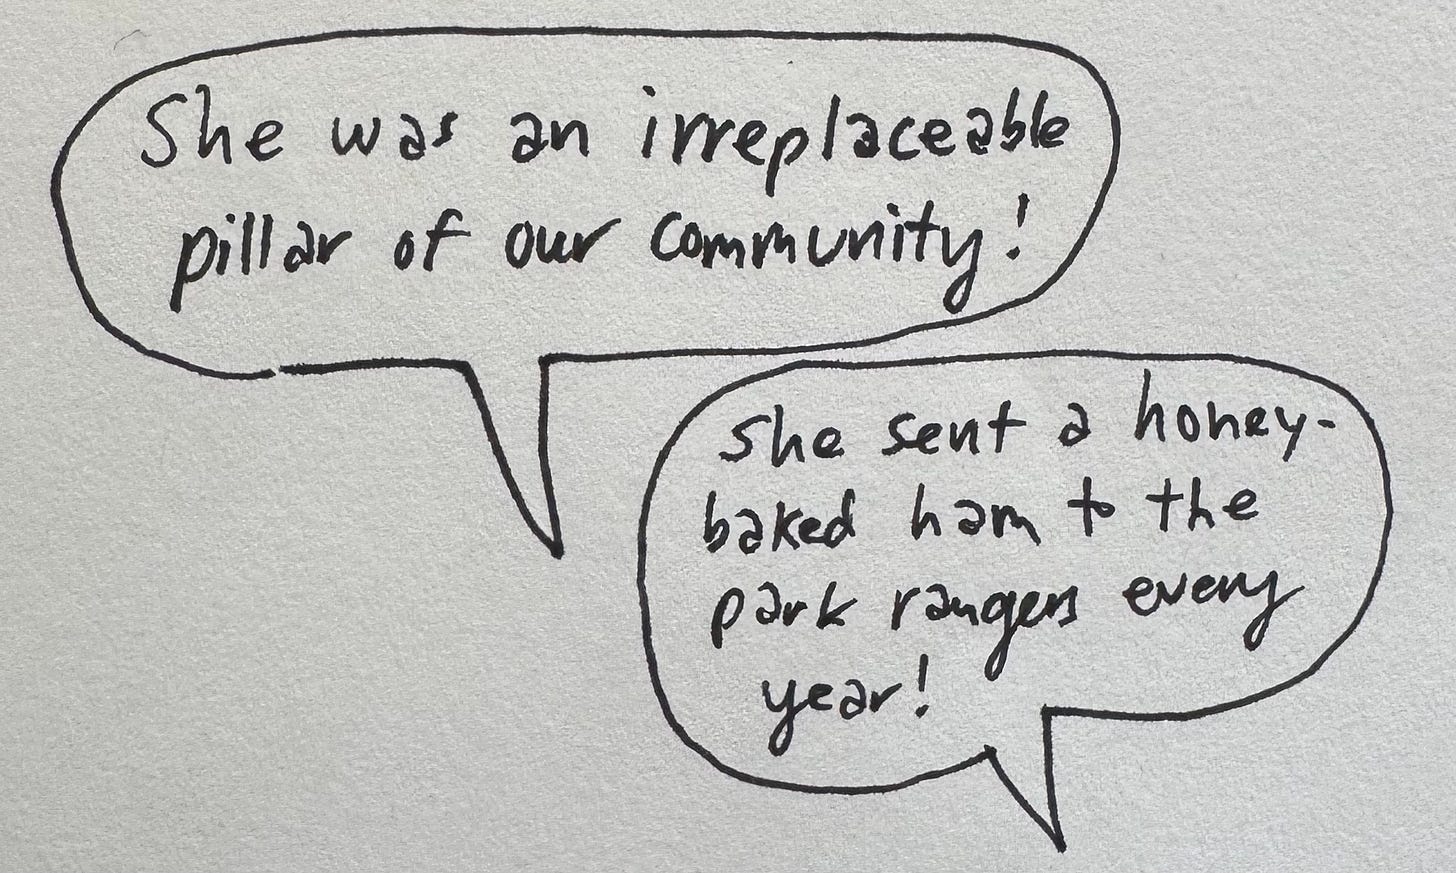 She was an irreplaceable
pillar of our community!
She sent a honey-
baked ham to the
park rangers every
year!